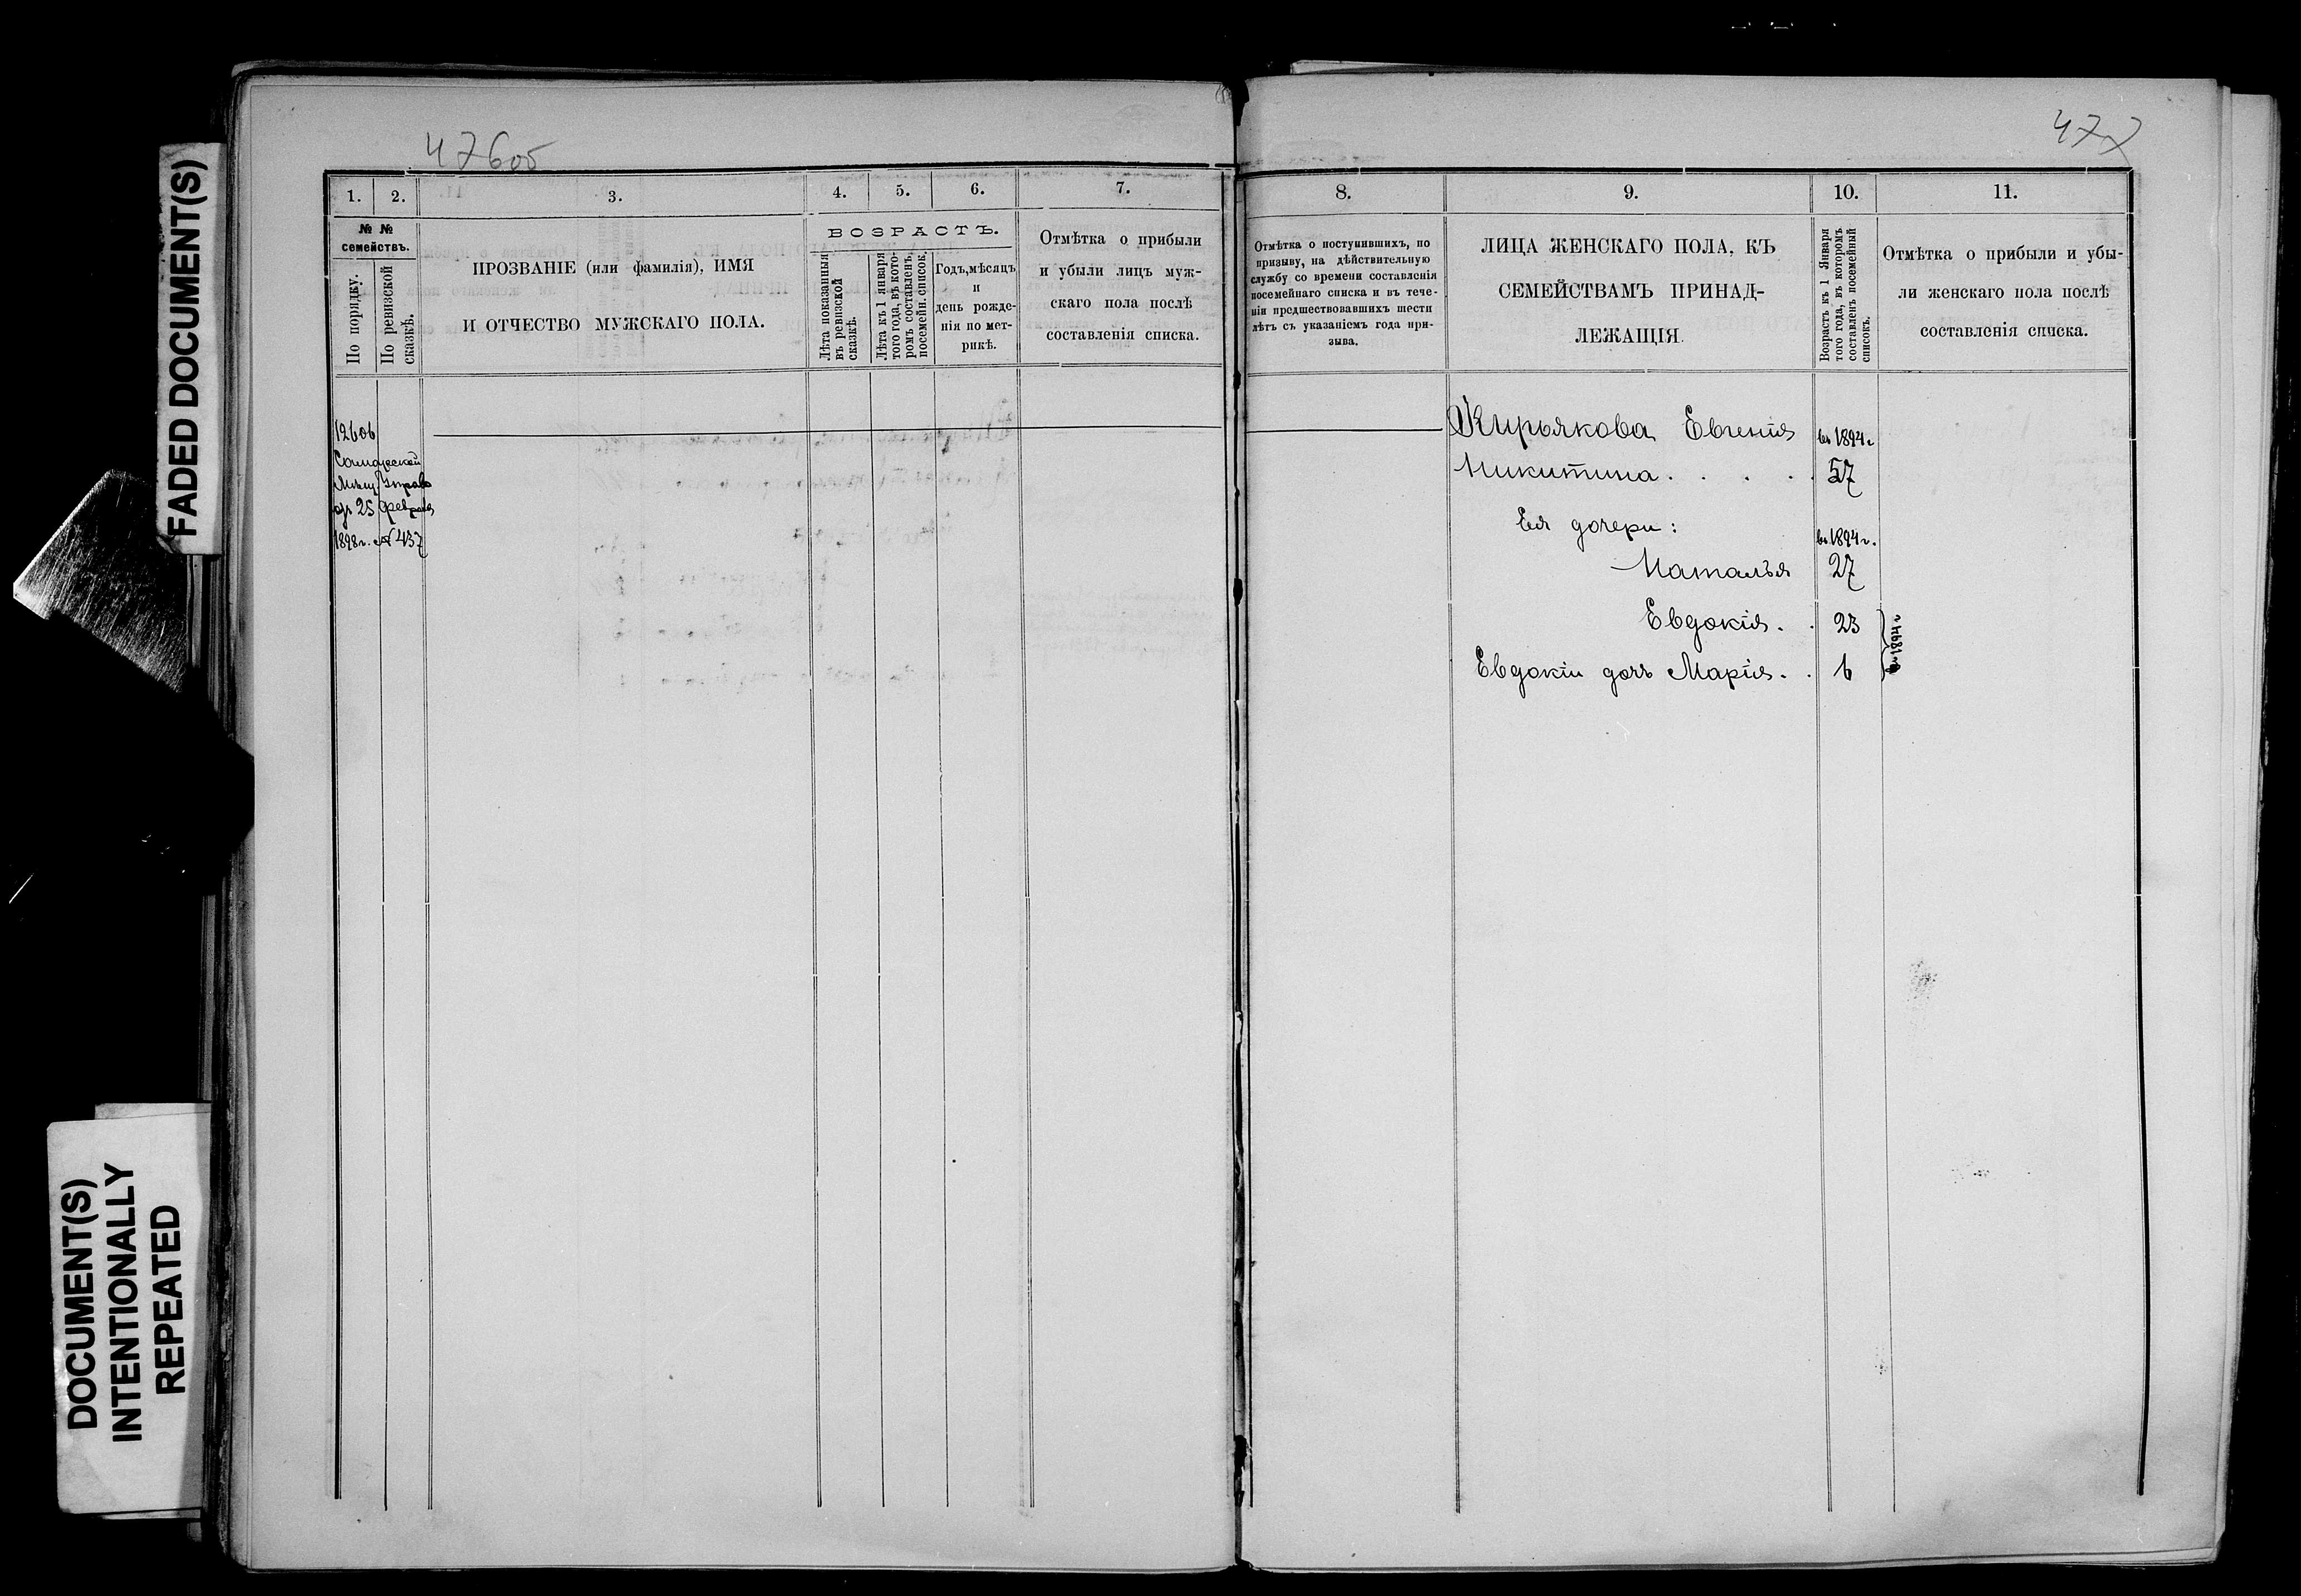 FADED DOCUMENT(S)
DOCUMENT(S)
INTENTIONALLY
REPEATED
476об
1.
2.
3.
4.
5.
6.
7.
№ №
семействъ.
По порядку.
По ревизской
сказкѣ.
ПРОЗВАНІЕ (или фамилія), ИМЯ
И ОТЧЕСТВО МУЖСКАГО ПОЛА.
ВОЗРАСТЪ.
Лѣта показанныя
въ ревизской
сказкѣ.
Лѣта къ 1 января
того года, въ кото-
ромъ составленъ
посемейн. список.
Годъ, мѣсяцъ
и
день рожде-
нія по мет-
рикѣ.
Отмѣтка о прибыли
и убыли лицъ муж-
скаго пола послѣ
составленія списка.
12606
Самарской
Мѣщ. Управы
отъ 25 февраля
1898г. № 437
477
8.
9.
10.
11.
Отмѣтка о поступившихъ, по
призыву, на дѣйствительную
службу со времени составленія
посемейнаго списка и въ тече-
ніи предшествовавшихъ шести
лѣтъ съ указаніемъ года при-
зыва.
ЛИЦА ЖЕНСКАГО ПОЛА, КЪ
СЕМЕЙСТВАМЪ ПРИНАД-
ЛЕЖАЩІЯ.
Возрастъ къ 1 Января
того года, въ которомъ
составленъ посемейный
списокъ.
Отмѣтка о прибыли и убы-
ли женскаго пола послѣ
составленія списка.
Кирьякова Евгенія въ 1894г
Никитина . . . . 57
Ея дочери:
въ 1894г.
Наталья 27
Евдокія . . 23
Евдокіи дочь Марія . . 6
въ 1894г